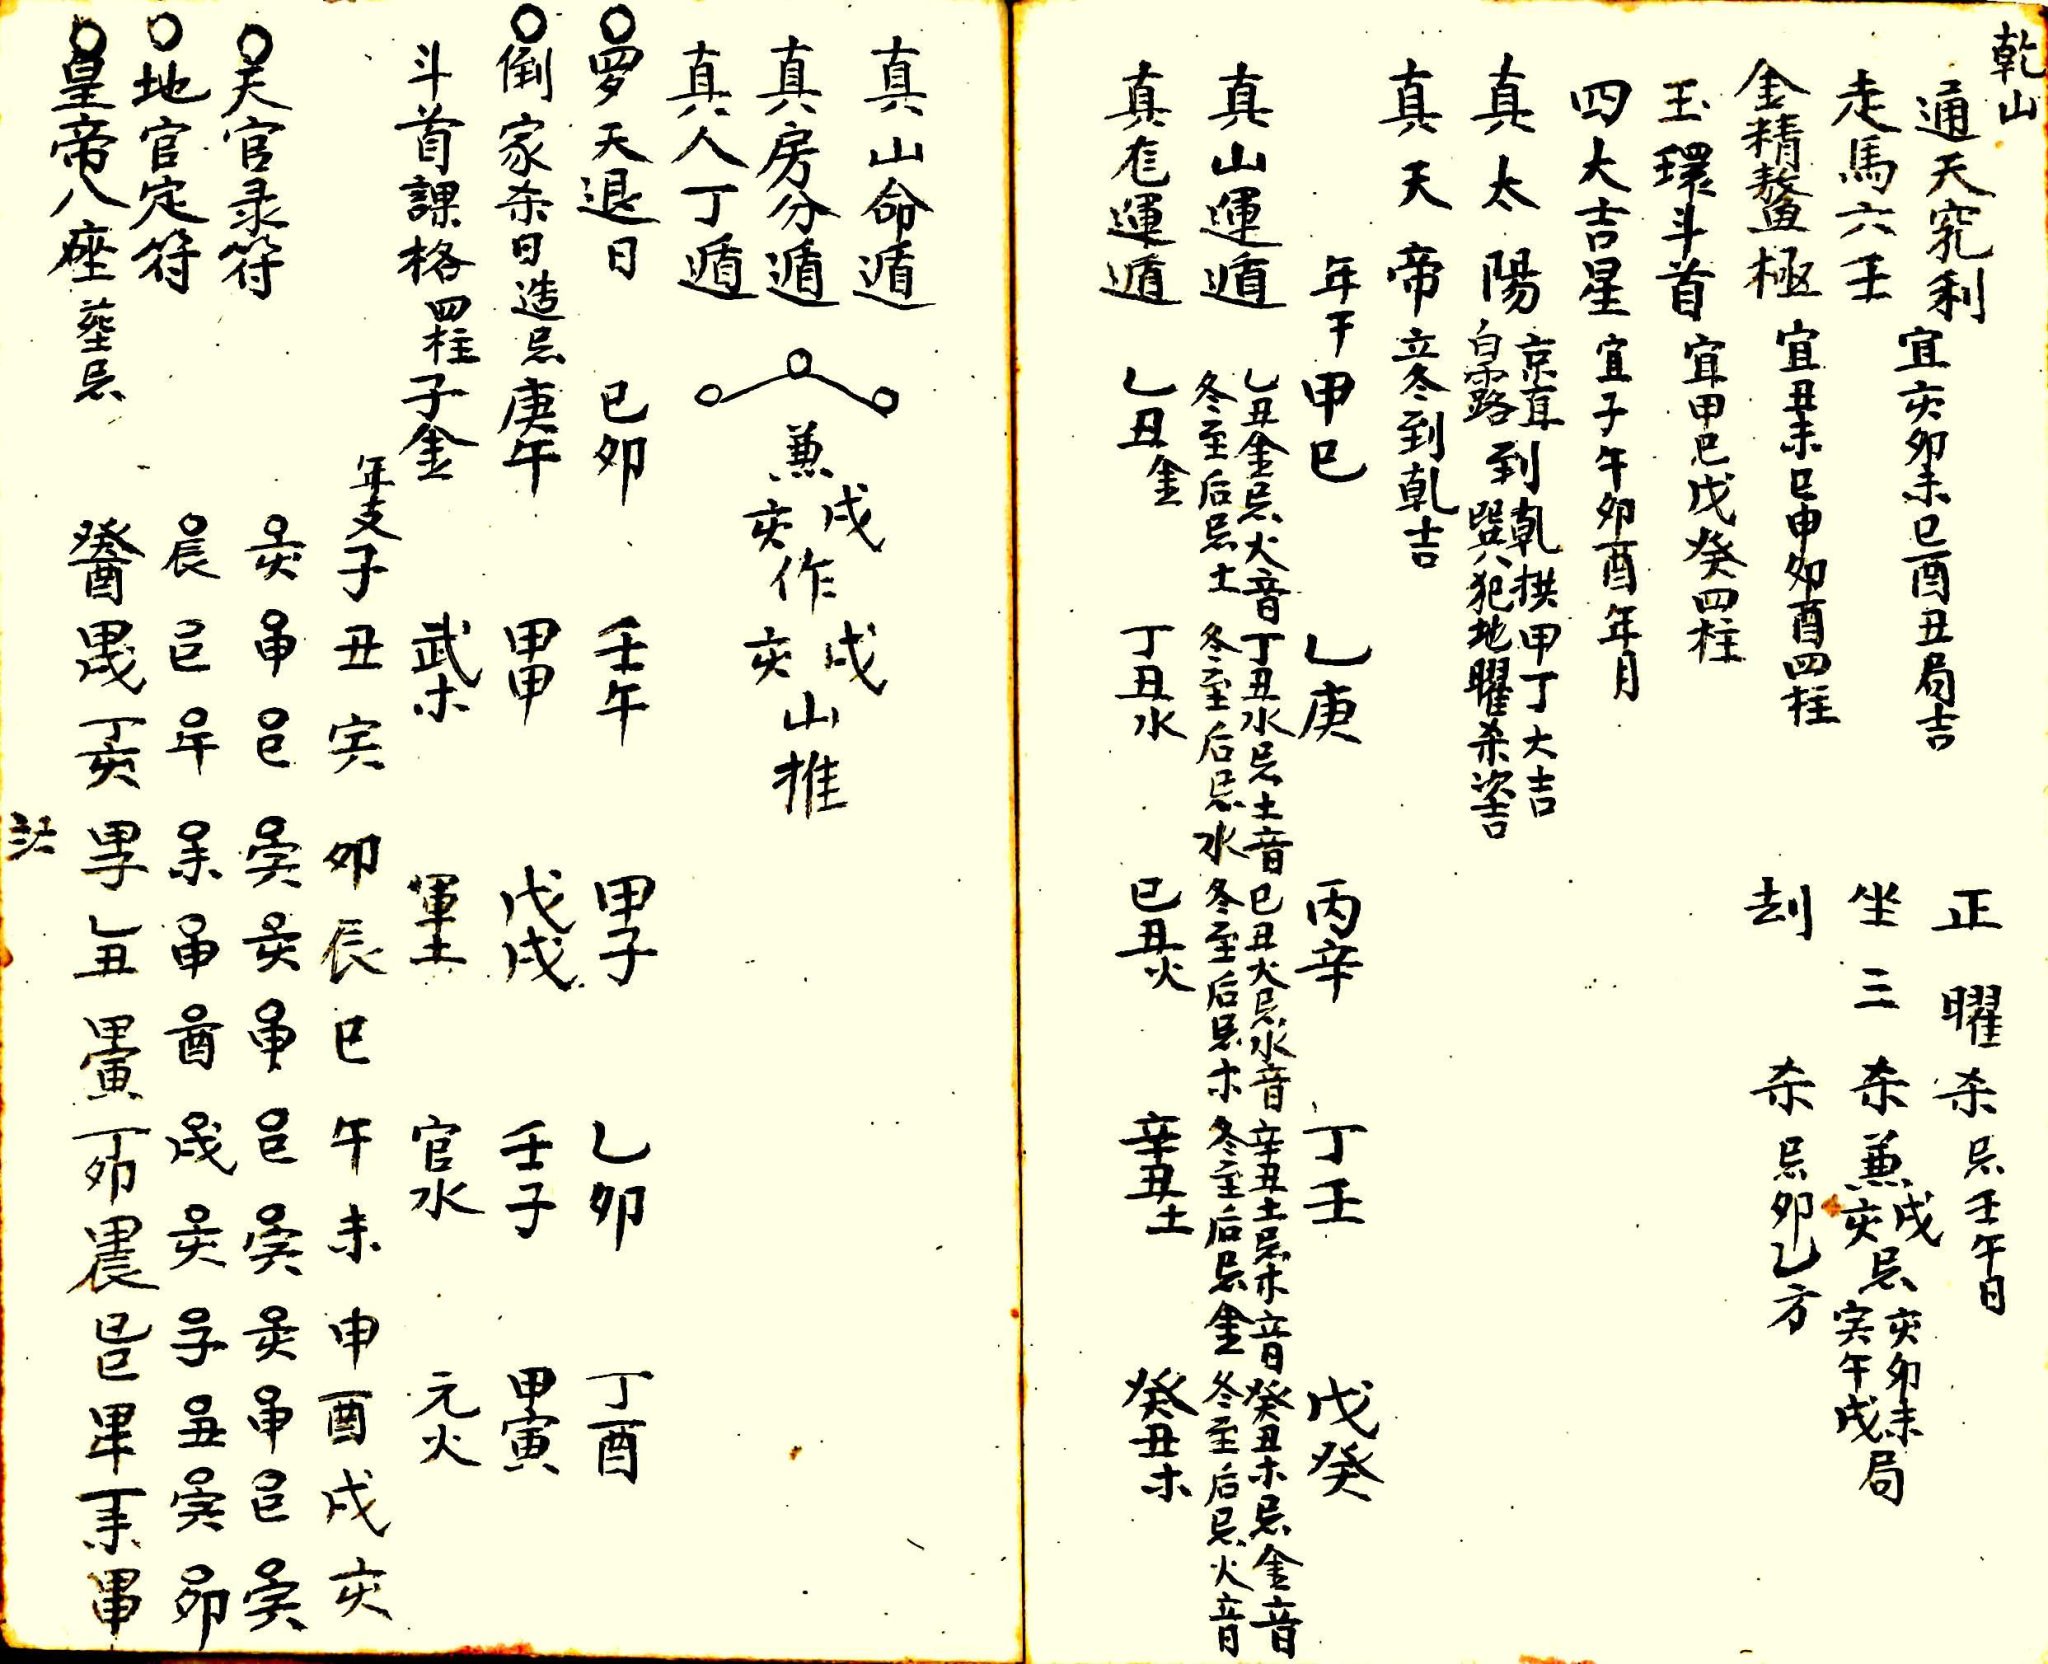 乾山
通天窍利 宜亥卯未巳酉丑局吉 正曜杀忌壬午日
走馬六壬 坐三杀兼戌亥忌亥卯未寅午戌局
金精鰲極 宜丑未巳申卯酉四柱 刦杀忌卯乙方
玉環斗首 宜甲巳戊癸四柱
四大吉星 宜子午卯酉年月
真太陽 京直到乾拱甲丁大吉
白露到巽犯地曜杀
真天帝 立冬到乾吉
年干 甲巳 乙庚 丙辛 丁壬 戊癸
真山運遁 乙丑金忌火音 丁丑水忌土音 巳丑火忌水音 辛丑土忌木音 癸丑木忌金音
冬至后忌土 冬至后忌水 冬至后忌木 冬至后忌金 冬至后忌火音
真運遁 乙丑金 丁丑水 巳丑火 辛丑土 癸丑木
真山命遁
真房分遁 兼戌亥作戌亥山推
真人丁遁
罗天退日 巳卯 壬午 甲子 乙卯 丁酉
倒家杀日造忌 庚午 甲申 戊戌 壬子 甲寅
斗首課格四柱 子金 武木 軍土 官水 元火
年支 子 丑 寅 卯 辰 巳 午 未 申 酉 戌 亥
天官录符 亥 申 巳 寅 亥 申 巳 寅 亥 申 巳 寅
地官定符 辰 巳 午 未 申 酉 戌 亥 子 丑 寅 卯
皇帝八座塟忌 癸酉 甲戌 丁亥 甲子 乙丑 甲寅 丁卯 甲辰 己巳 甲午 丁未 甲申